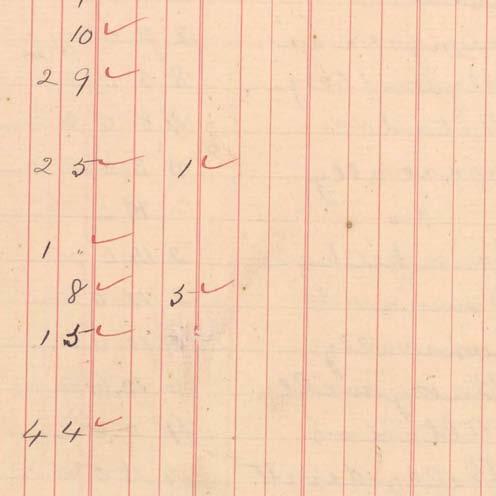 10 ✓
2 9 ✓
2 5 ✓ 1 ✓
1 " ✓
8 ✓ 5 ✓
1 5 ✓
4 4 ✓